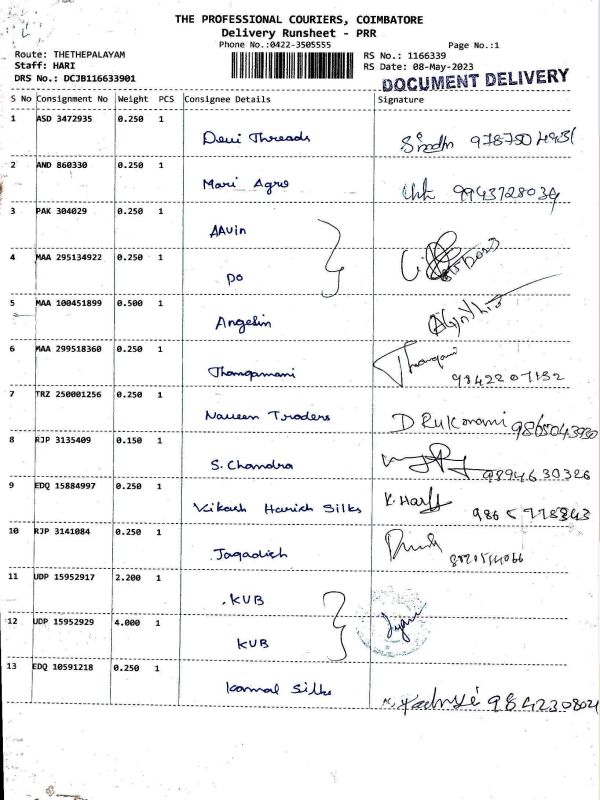 THE PROFESSIONAL COURIERS, COIMBATORE
Delivery Runsheet - PRR
Phone No.:0422-3505555 Page No.:1
Route: THETHEPALAYAM RS No.: 1166339
Staff: HARI RS Date: 08-May-2023
DRS No.: DCJB116633901 DOCUMENT DELIVERY
S No Consignment No Weight PCS Consignee Details Signature
1 ASD 3472935 0.250 1
Devi Threads
2 AND 860330 0.250 1
Mari Agro 9943728034
3 PAK 304029 0.250 1
AAvin
4 MAA 295134922 0.250 1
DO
5 MAA 100451899 0.500 1
Angelin
6 MAA 299518360 0.250 1
Thangamani Thangam
9842207132
7 TRZ 250001256 0.250 1
Naveen Traders D Rukmani 9865043930
8 RJP 3135409 0.150 1
S. Chandra 9894630326
9 EDQ 15884997 0.250 1
Vikash Harish Silks K. Harish
10 RJP 3141084 0.250 1
Jagadish
11 UDP 15952917 2.200 1
KUB
12 UDP 15952929 4.000 1
KUB
13 EDQ 10591218 0.250 1
Kamal Silks 9842308021